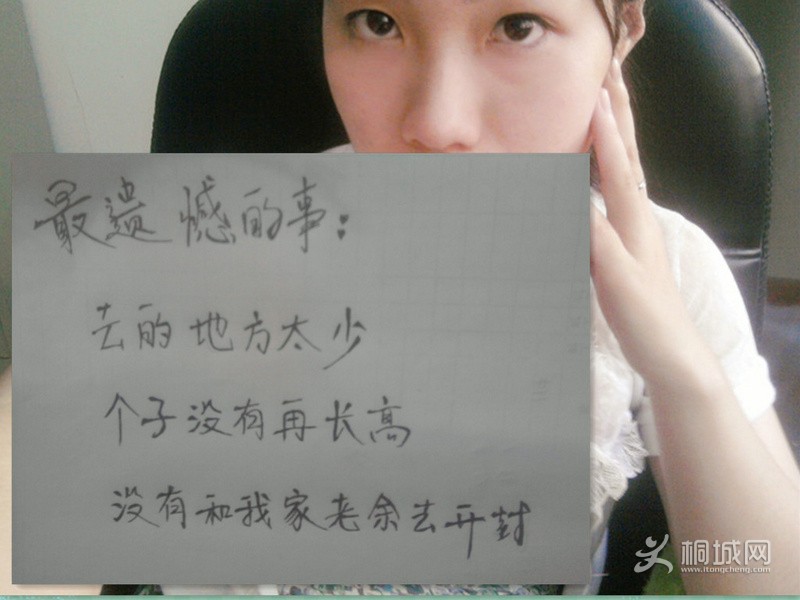 最遗憾的事:
去的地方太少
个子没有再长高
没有和我家老余去开封
桐城网
www.itongcheng.com